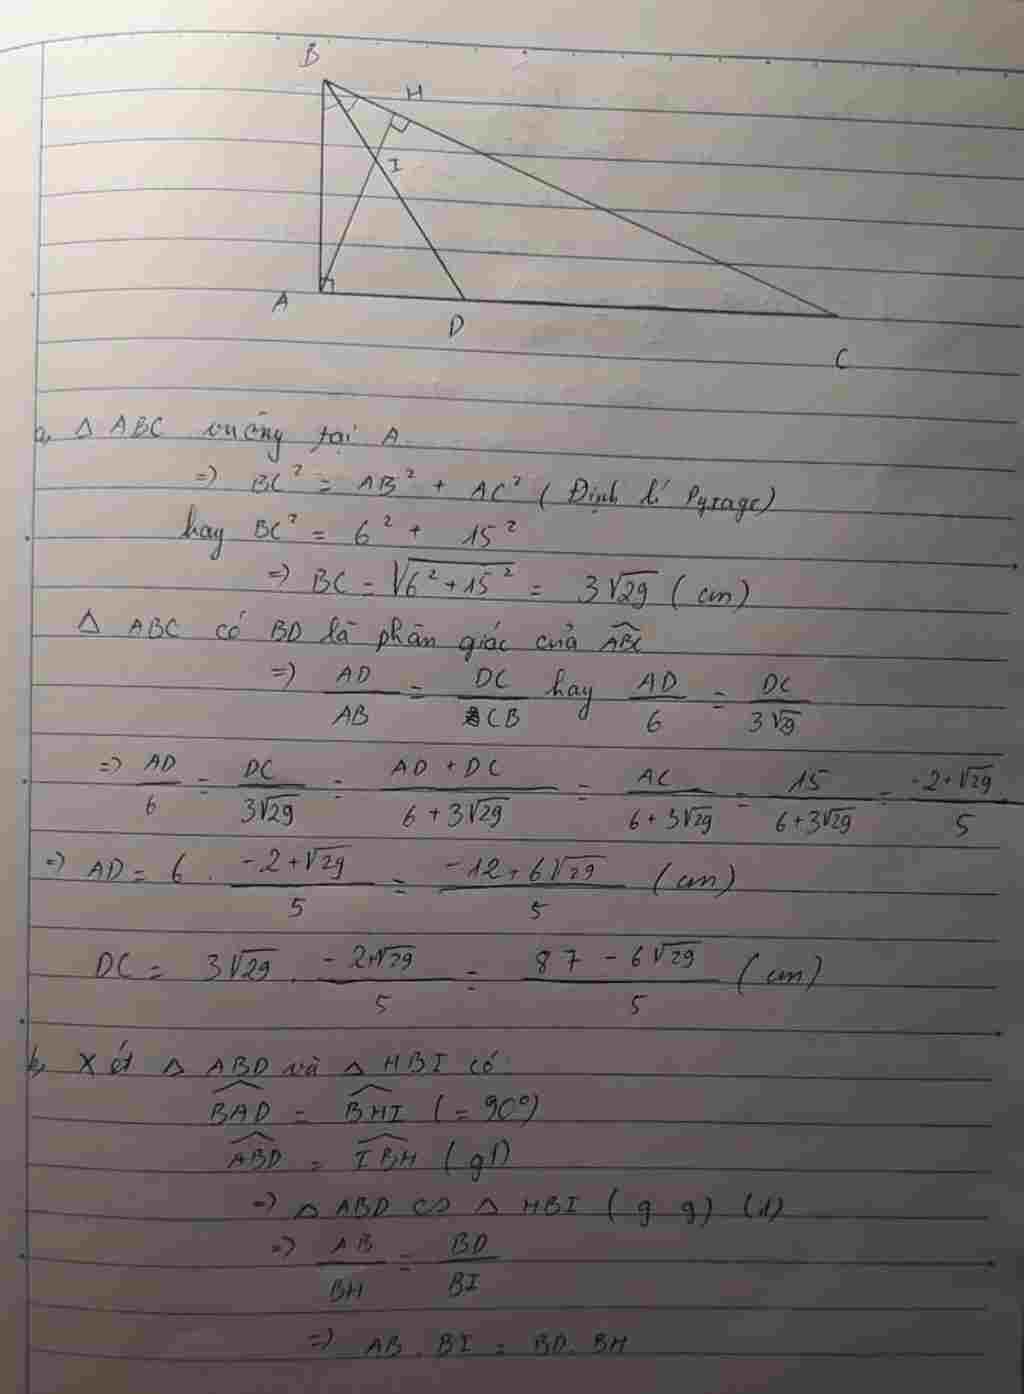 B
H
I
A
D
C
a, △ ABC vuông tại A
=> BC² = AB² + AC² (Định lí Pytago)
hay BC² = 6² + 15²
=> BC = √(6² + 15²) = 3√29 (cm)
△ ABC có BD là phân giác của ABC
=> AD/AB = DC/CB hay AD/6 = DC/3√29
=> AD/6 = DC/3√29 = (AD + DC)/(6 + 3√29) = AC/(6 + 3√29) = 15/(6 + 3√29) = (-2 + √29)/5
=> AD = 6 . (-2 + √29)/5 = (-12 + 6√29)/5 (cm)
DC = 3√29 . (-2 + √29)/5 = (87 - 6√29)/5 (cm)
b, Xét △ ABD và △ HBI có:
BAD = BHI (= 90°)
ABD = IBH (gt)
=> △ ABD ∽ △ HBI (g g) (1)
=> AB/BH = BD/BI
=> AB . BI = BD . BH